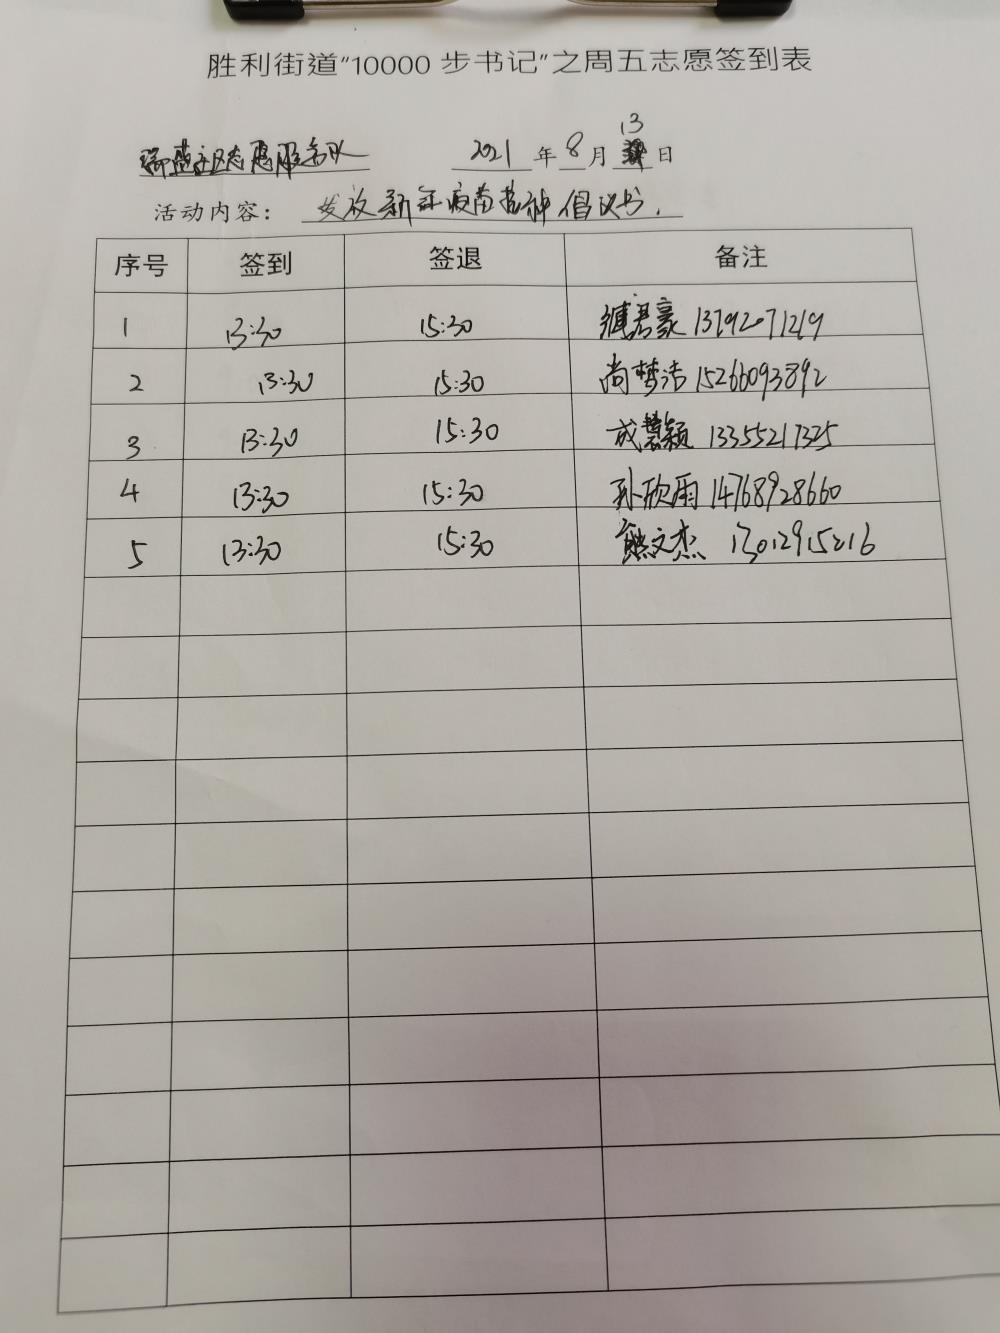 胜利街道“10000 步书记”之周五志愿签到表
瑞盛社区志愿服务队 2021 年 8 月 13 日
活动内容： 发放新冠疫苗接种倡议书.
序号 签到 签退 备注
1 13:30 15:30 君豪 13792071219
2 13:30 15:30 尚梦洁 15266093892
3 13:30 15:30 成慧颖 13355217325
4 13:30 15:30 孙欣雨 14768928660
5 13:30 15:30 熊文杰 13012915216